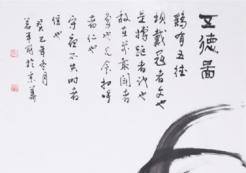 五德圖
鷄有五德
頭戴冠者文也
足搏距者武也
敵在前敢鬥者
勇也見食相呼
者仁也
守夜不失時者
信也
癸巳年冬月
於京華